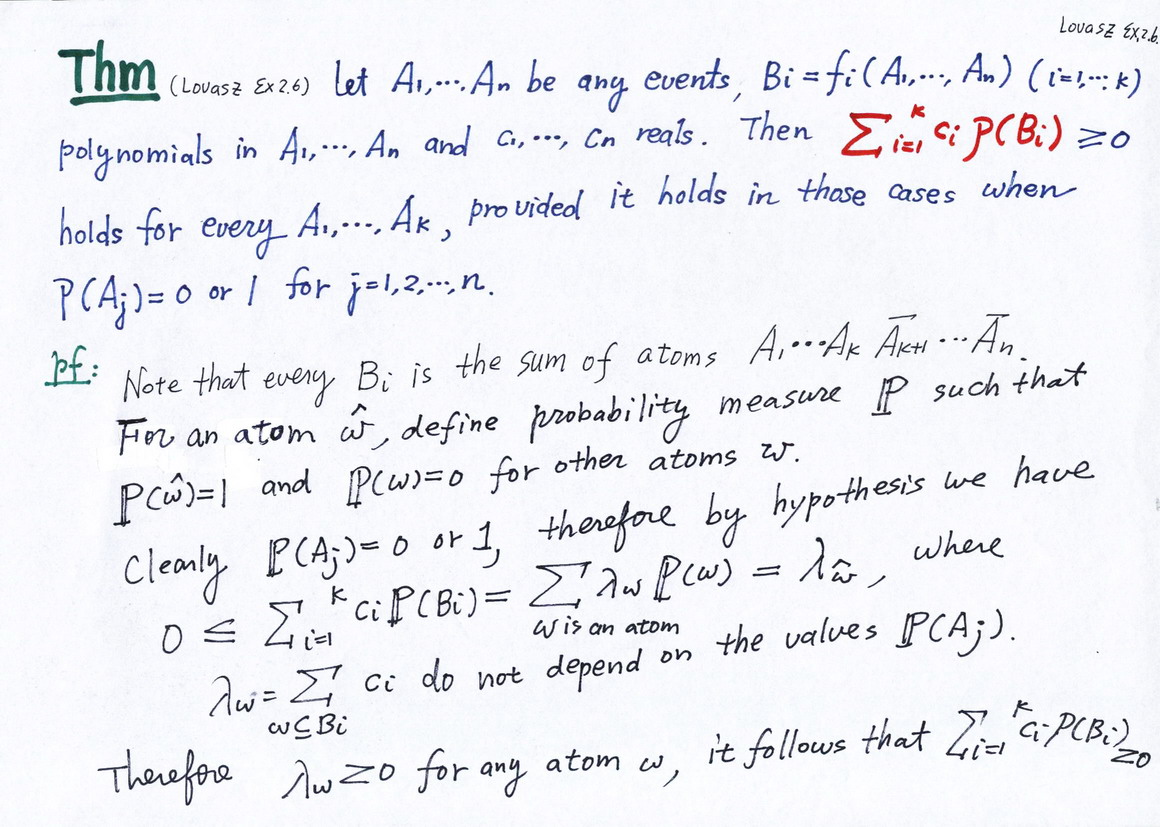 Lovasz Ex.2.6
Thm (Lovasz Ex 2.6) let A₁,…,Aₙ be any events, Bᵢ = fᵢ(A₁,…,Aₙ) (i=1,…,k)
polynomials in A₁,…,Aₙ and c₁,…,cₙ reals. Then ∑ᵢ₌₁ᵏ cᵢ P(Bᵢ) ≥ 0
holds for every A₁,…,Aₖ, provided it holds in those cases when
P(Aⱼ)=0 or 1 for j=1,2,…,n.
pf: Note that every Bᵢ is the sum of atoms A₁⋯Aₖ A̅ₖ₊₁⋯A̅ₙ.
For an atom ŵ, define probability measure ℙ such that
ℙ(ŵ)=1 and ℙ(w)=0 for other atoms w.
Clearly ℙ(Aⱼ)=0 or 1, therefore by hypothesis we have
0 ≤ ∑ᵢ₌₁ᵏ cᵢ ℙ(Bᵢ) = ∑ λw ℙ(w) = λŵ, where
w is an atom
λw = ∑ cᵢ do not depend on the values ℙ(Aⱼ).
w⊆Bᵢ
Therefore λw ≥ 0 for any atom w, it follows that ∑ᵢ₌₁ᵏ cᵢ P(Bᵢ) ≥0